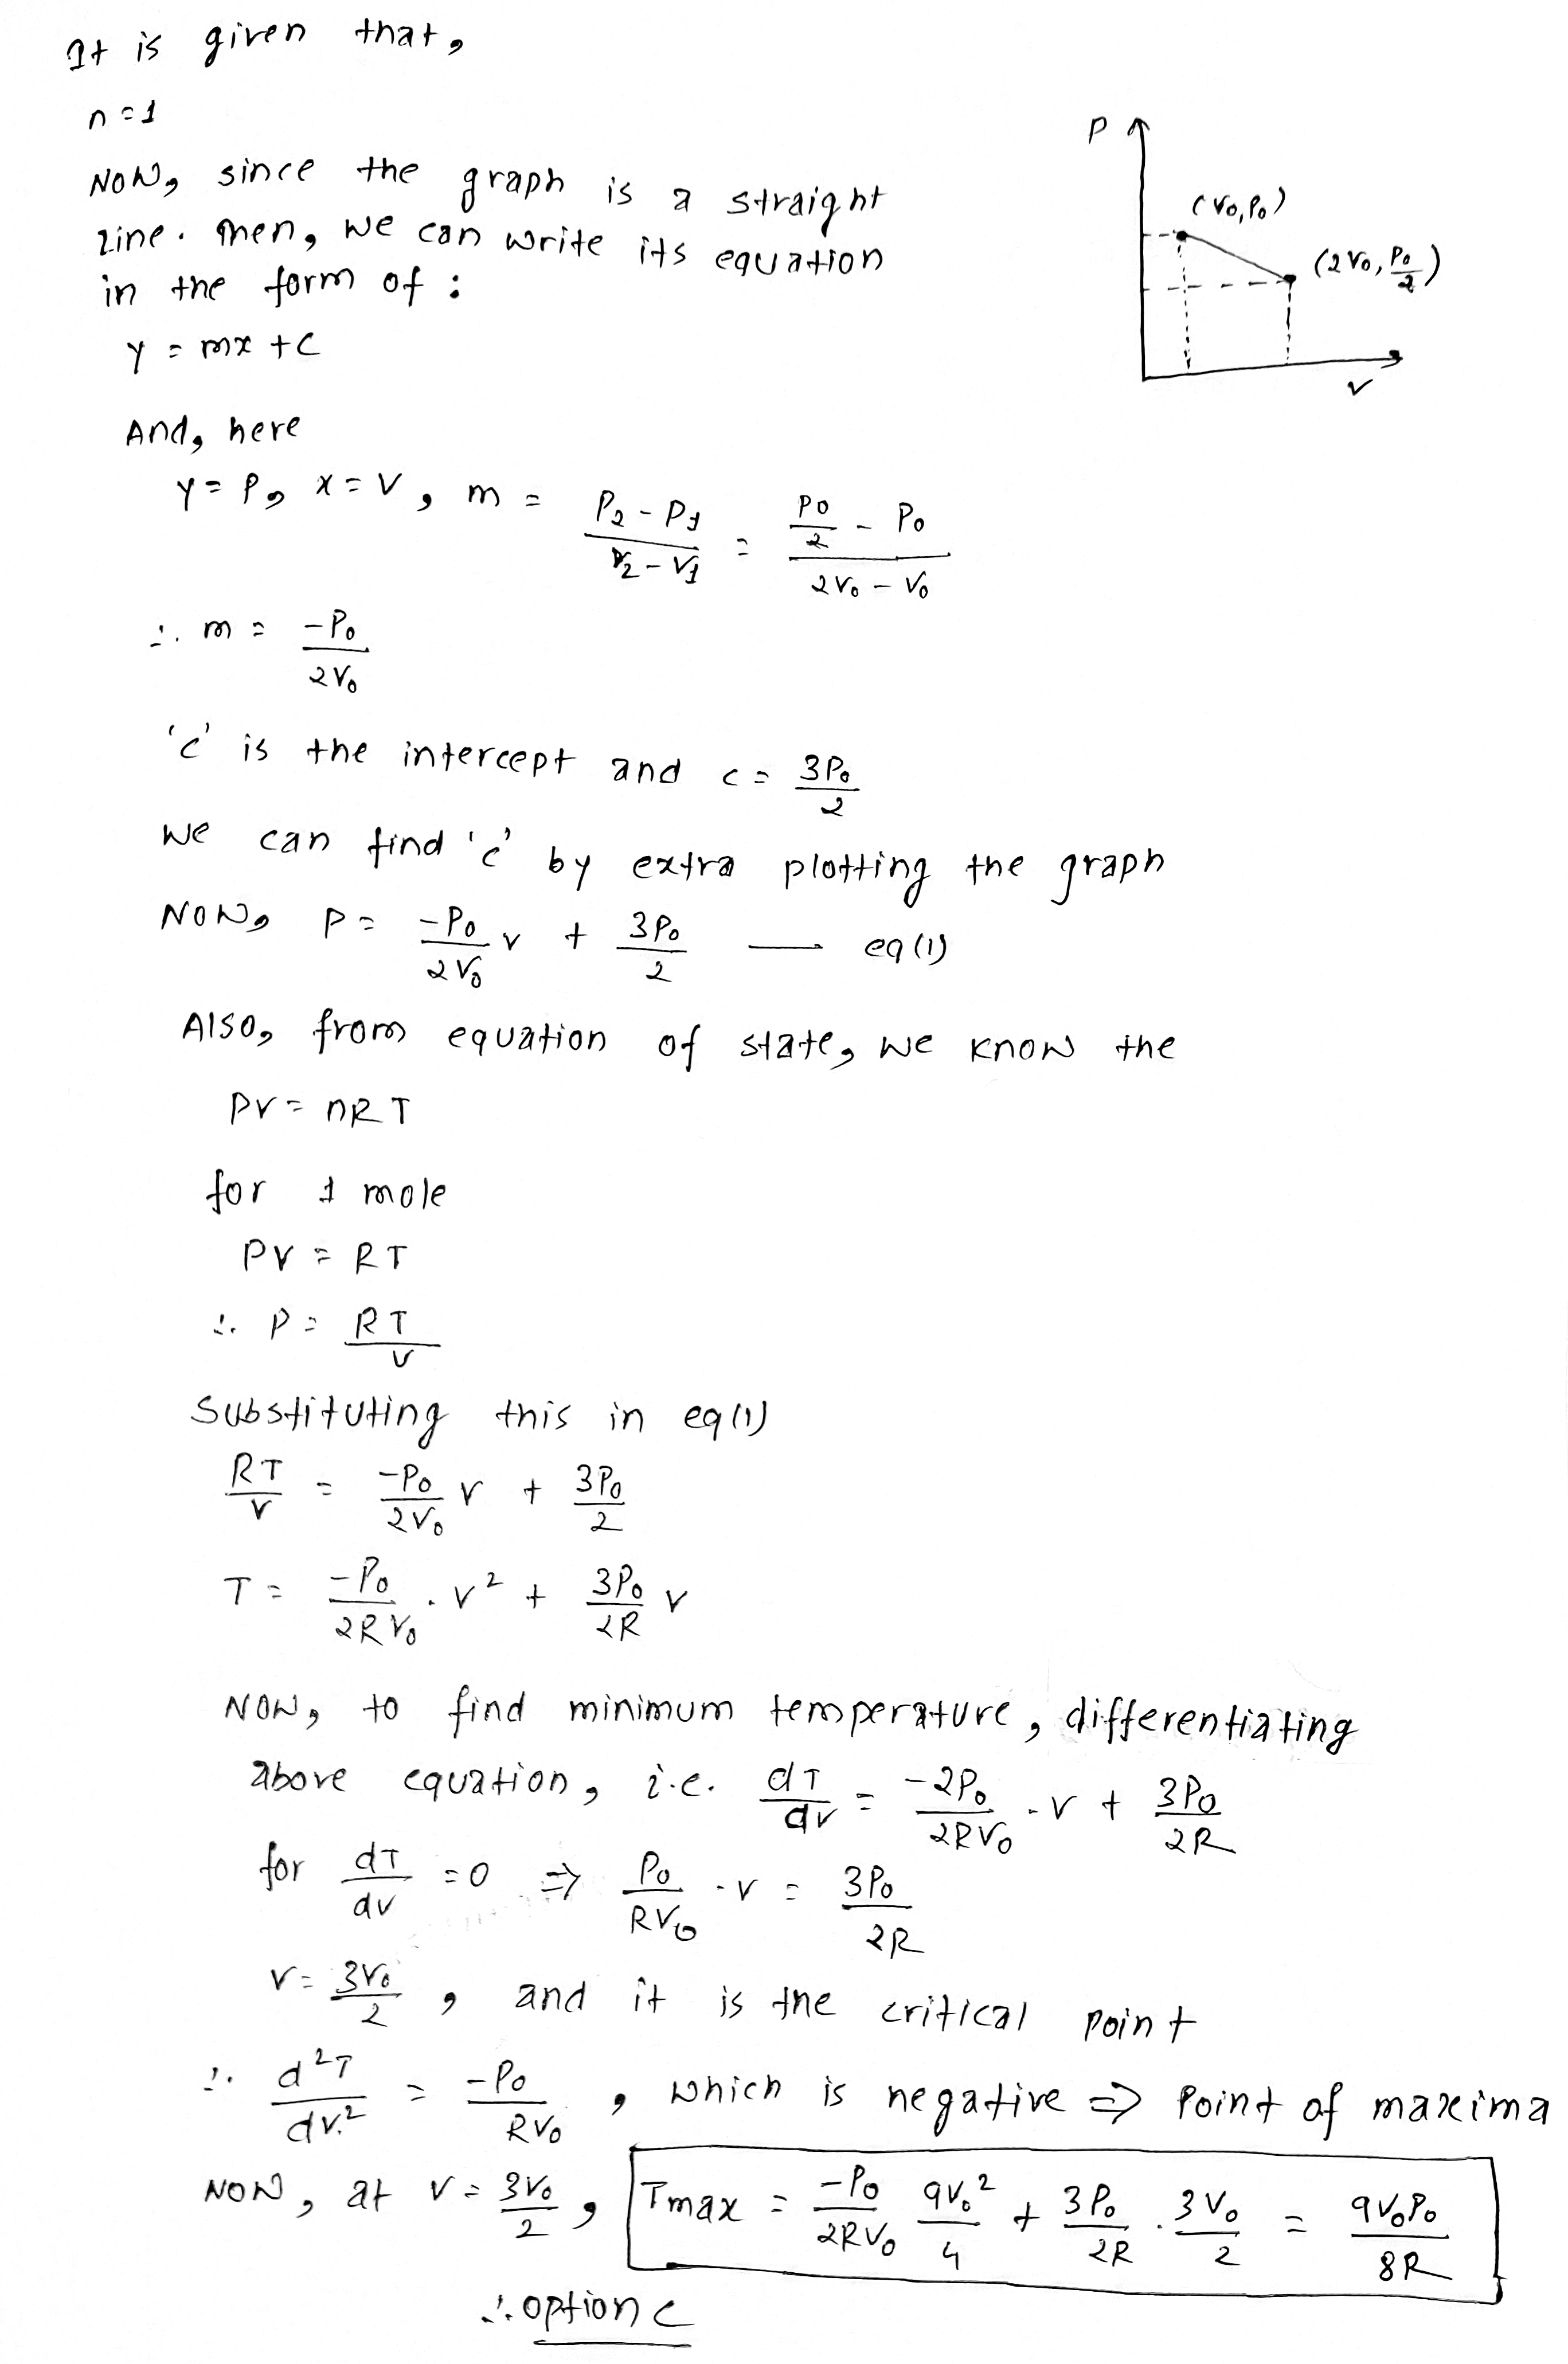 It is given that,
n = 1
Now, since the graph is a straight
line. Then, we can write its equation
in the form of :
y = mx + c
P
(V₀, P₀)
(2V₀, P₀/2)
V
And, here
y = P, x = V, m = (P₂ - P₁)/(V₂ - V₁) = (P₀/2 - P₀)/(2V₀ - V₀)
∴ m = -P₀/2V₀
'c' is the intercept and c = 3P₀/2
we can find 'c' by extra plotting the graph
Now, P = -P₀/2V₀ V + 3P₀/2 — eq(1)
Also, from equation of state, we know the
PV = nRT
for 1 mole
PV = RT
∴ P = RT/V
Substituting this in eq(1)
RT/V = -P₀/2V₀ V + 3P₀/2
T = -P₀/2RV₀ . V² + 3P₀/2R V
Now, to find minimum temperature, differentiating
above equation, i.e. dT/dV = -2P₀/2RV₀ . V + 3P₀/2R
for dT/dV = 0 ⇒ P₀/RV₀ . V = 3P₀/2R
V = 3V₀/2, and it is the critical point
∴ d²T/dV² = -P₀/RV₀, which is negative ⇒ Point of maxima
Now, at V = 3V₀/2, Tmax = -P₀/2RV₀ 9V₀²/4 + 3P₀/2R . 3V₀/2 = 9V₀P₀/8R
∴ option c